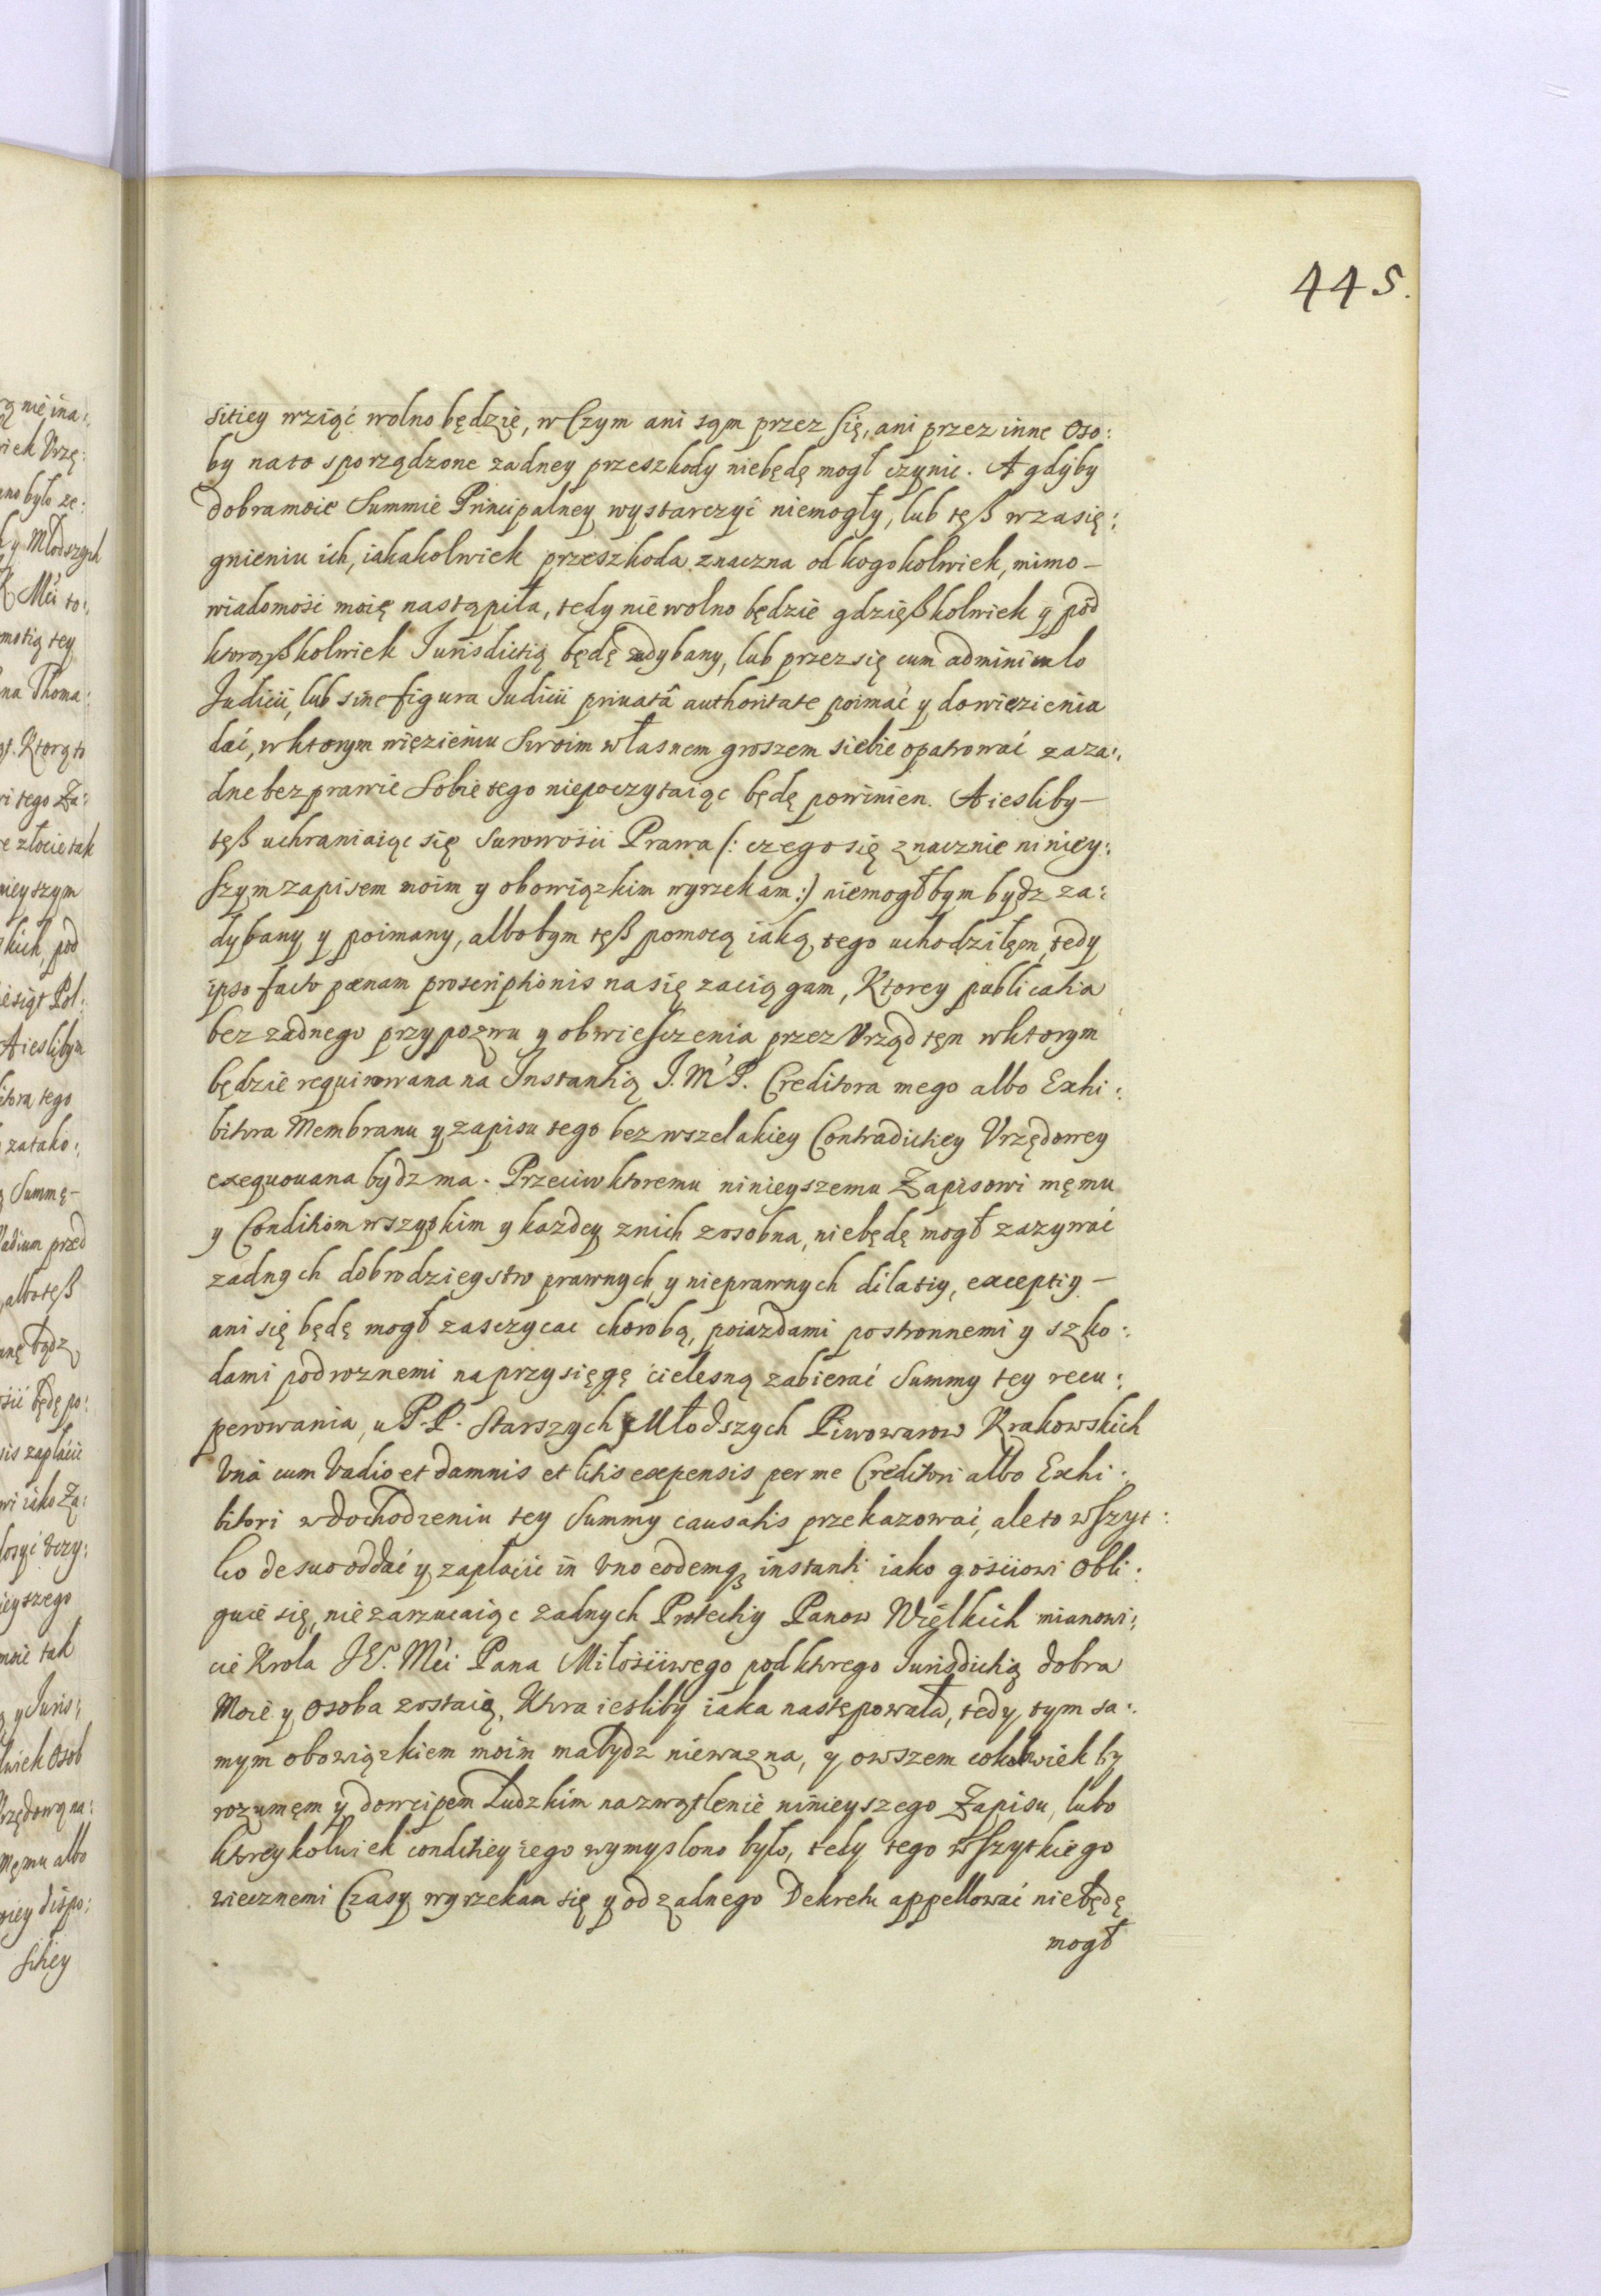 445.
sitiey wziąć wolno będzie, w Czym ani sąm przez się, ani przez inne Oso:
by na to sporządzone zadney przeszkody niebędę mogł czynic. A gdyby
dobra moie Summie Principalney wystarczyć niemogły, lub tęß w zasię:
gnieniu ich, iakakolwiek przeszkoda znaczna od kogokolwiek, mimo –
wiadomośc moię nastąpiła, tedy nie wolno będzie gdzięßkolwiek y pod
ktorąßkolwiek Iurisdictią będę zdybany, lub przez się cum adminiculo
Judicii, lub sine figura Iudicii priuatâ authoritate poimać y do więzienia
dać, w ktorym więzieniu Swoim własnem groszem siebie opatrować za za:
dne bezprawie Sobie tego niepoczytaiąc będę powinien. A iesliby –
tęß uchraniaiąc się Surowości Prawa (: czego się znacznie niniey:
szym zapisem moim y obowiązkim wyrzekam :) niemogłbym bydz za:
dybany y poimany, albobym tęß pomocą iaką tego uchodziłęm, tedy
ipso facto pœnam proscriptionis na się zaciągam, Ktorey publicatia
bez zadnego przypozwu y obwiesczenia przez Vrząd tęn w ktorym
będzie requirowana na Instantią J. M. P. Creditora mego albo Exhi:
bitora Membranu y zapisu tego bez wszelakiey Contradictiey Vrzędowey
exequouana bydz ma. Przeciw ktoremu ninieyszemu Zapisowi męmu
y Conditiom wszytkim y kazdey z nich zosobna, niebędę mogł zazywać
zadnych dobrodzieystw prawnych, y nieprawnych dilatiy, exceptiy –
ani się będę mogł zasczycac chorobą, poiazdami postronnemi y szko:
dami podroznemi na przysięgę cielesną zabierać Summy tey recu:
perowania, u P. P. Starszych y Młodszych Piwowarow Krakowskich
Vnà cum Vadio et damnis et litis expensis per me Creditori albo Exhi:
bitori w dochodzeniu tey Summy causatis przekazowai, ale to wszyt:
ko de suo oddać y zapłacić in Vno eodemq₃ instanti iako gościowi Obli:
guie się, nie zarzucaiąc zadnych Protectiy Panow Wielkich mianowi:
cie Krola JE°. Mći Pana Miłościwego pod ktorego Iurisdictią dobra
Moie y Osoba zostaią, Ktora iesliby iaka nastepowała, tedy tym sa:
mym obowiązkiem moim ma bydz niewazna, y owszem cokolwiek by
rozumęm y dowcipem Ludzkim na zwątlenie ninieyszego Zapisu, lubo
ktoreykolwiek conditiey iego wymyslono było, tedy tego wszytkiego
wiecznemi Czasy wyrzekam się y od zadnego Dekretu appellować niebędę
mogł